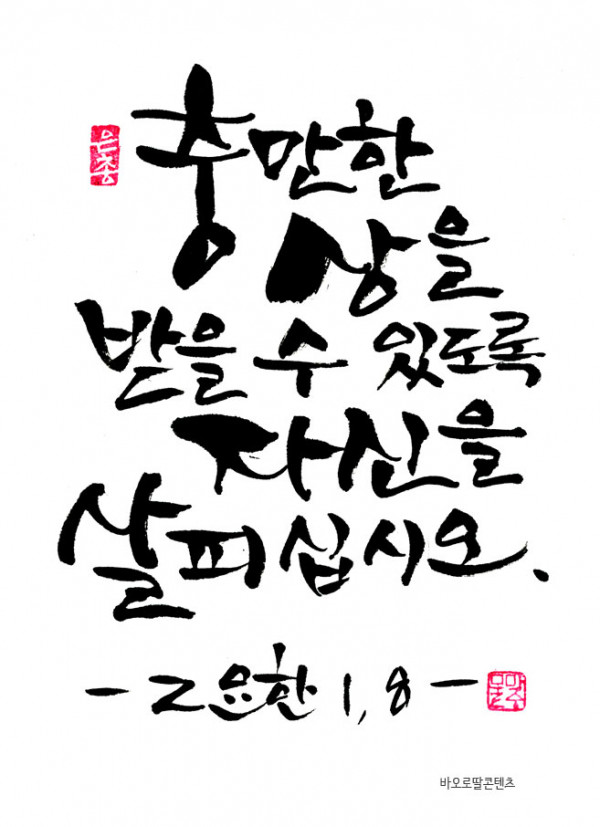 은총
충만한
상을
받을 수 있도록
자신을
살피십시오.
- 2 요한 1, 8 -
바오로딸콘텐츠